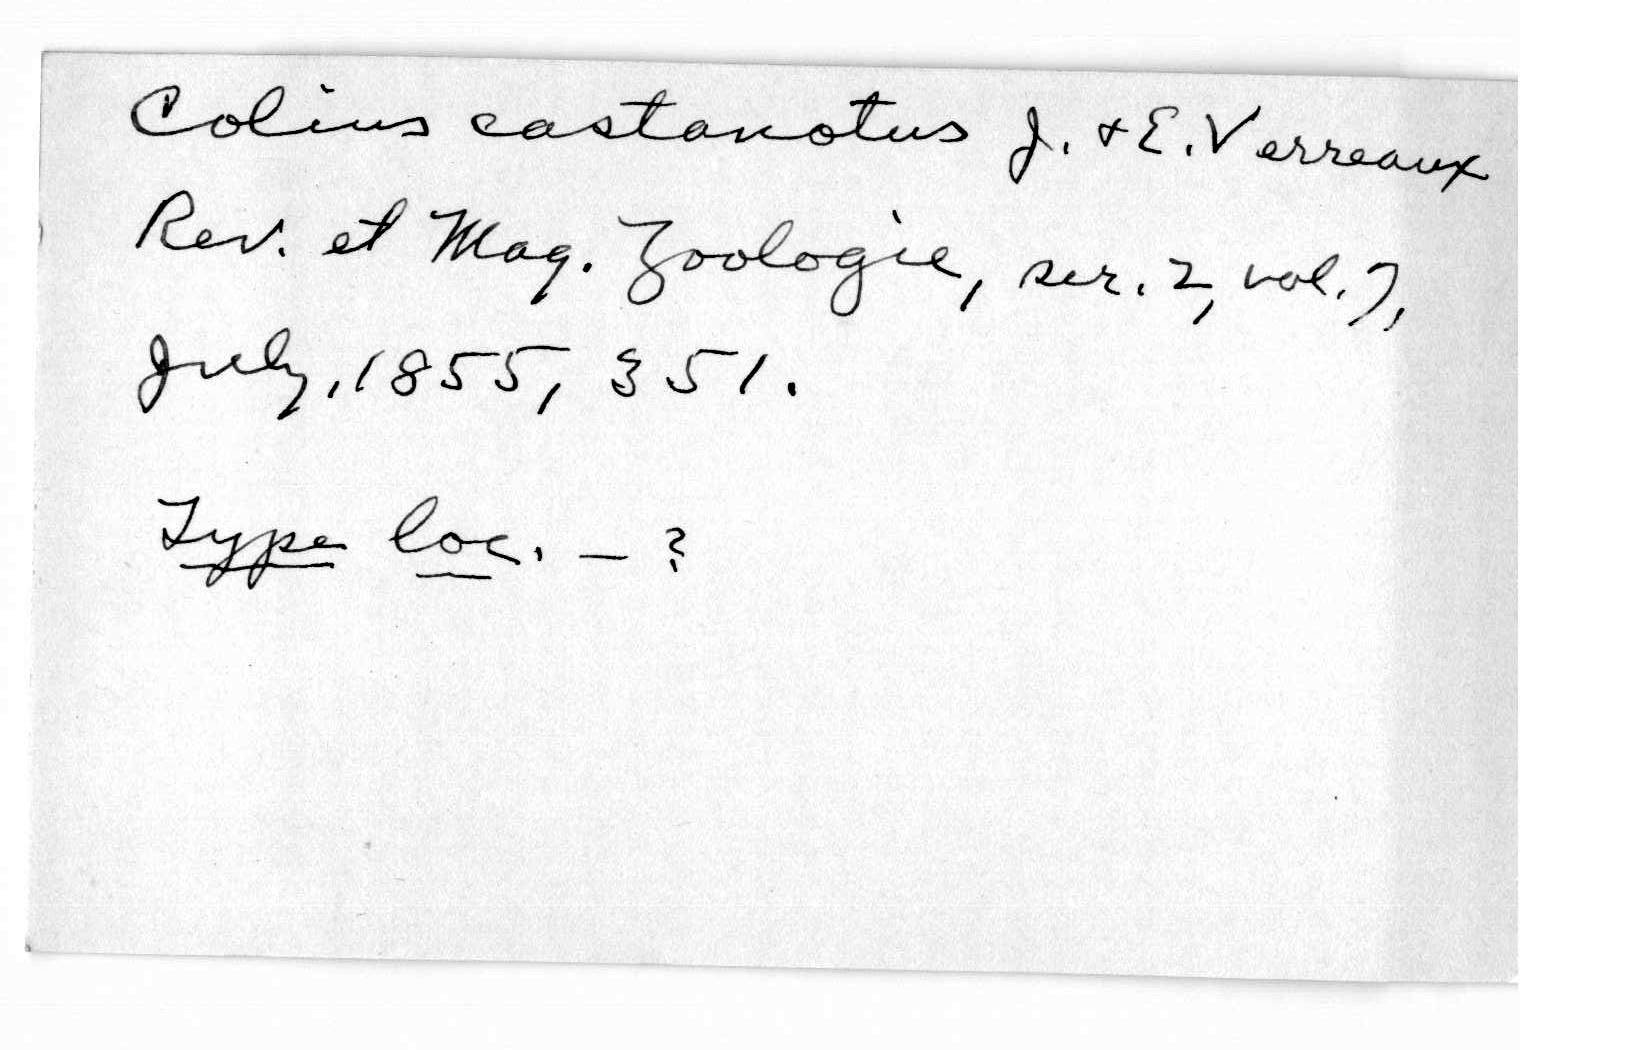 Colius castanotus J. & E. Verreaux
Rev. et Mag. Zoologie, ser. 2, vol. 7,
July, 1855, 351.
Type loc. – ?